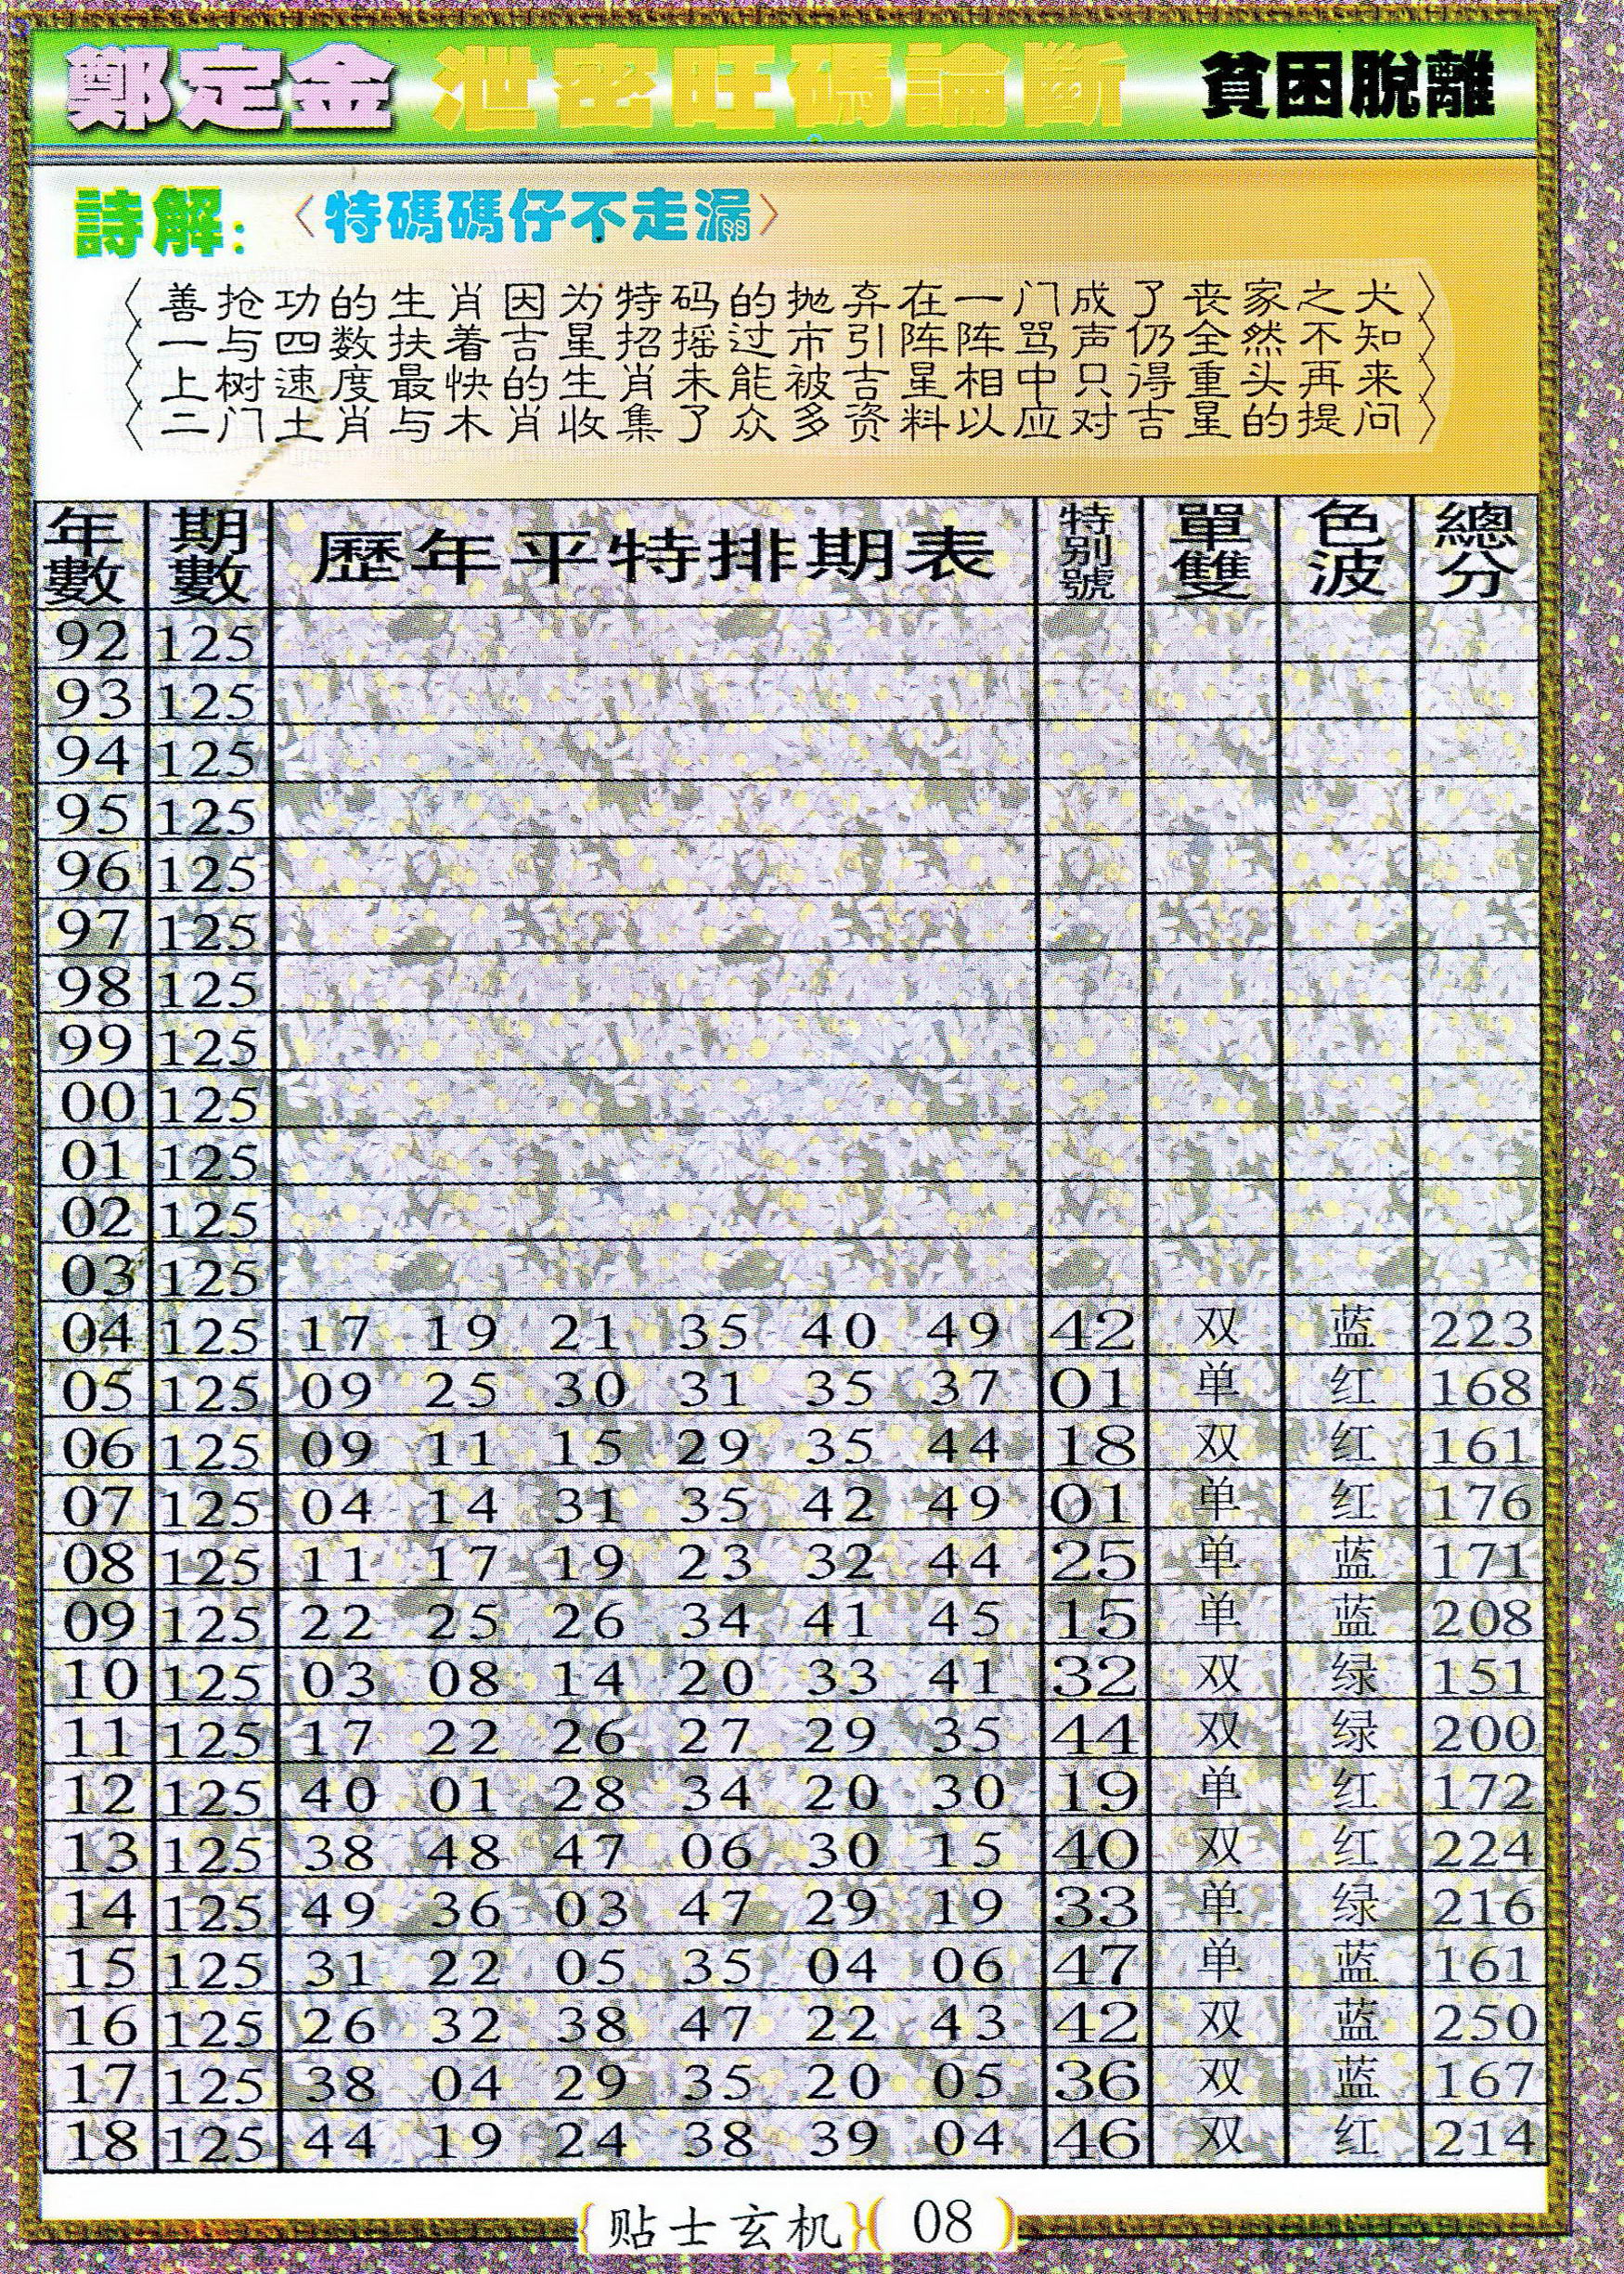 鄭定金 泄密旺碼論斷 貧困脫離
詩解: 〈特碼碼仔不走漏〉
〈善抢功的生肖因为特码的抛弃在一门成了丧家之犬〉
〈一与四数扶着吉星招摇过市引阵阵骂声仍全然不知〉
〈上树速度最快的生肖未能被吉星相中只得重头再来〉
〈二门土肖与木肖收集了众多资料以应对吉星的提问〉
年數 期數 歷年平特排期表 特別號 單雙 色波 總分
92 125
93 125
94 125
95 125
96 125
97 125
98 125
99 125
00 125
01 125
02 125
03 125
04 125 17 19 21 35 40 49 42 双 蓝 223
05 125 09 25 30 31 35 37 01 单 红 168
06 125 09 11 15 29 35 44 18 双 红 161
07 125 04 14 31 35 42 49 01 单 红 176
08 125 11 17 19 23 32 44 25 单 蓝 171
09 125 22 25 26 34 41 45 15 单 蓝 208
10 125 03 08 14 20 33 41 32 双 绿 151
11 125 17 22 26 27 29 35 44 双 绿 200
12 125 40 01 28 34 20 30 19 单 红 172
13 125 38 48 47 06 30 15 40 双 红 224
14 125 49 36 03 47 29 19 33 单 绿 216
15 125 31 22 05 35 04 06 47 单 蓝 161
16 125 26 32 38 47 22 43 42 双 蓝 250
17 125 38 04 29 35 20 05 36 双 蓝 167
18 125 44 19 24 38 39 04 46 双 红 214
{贴士玄机}(08)